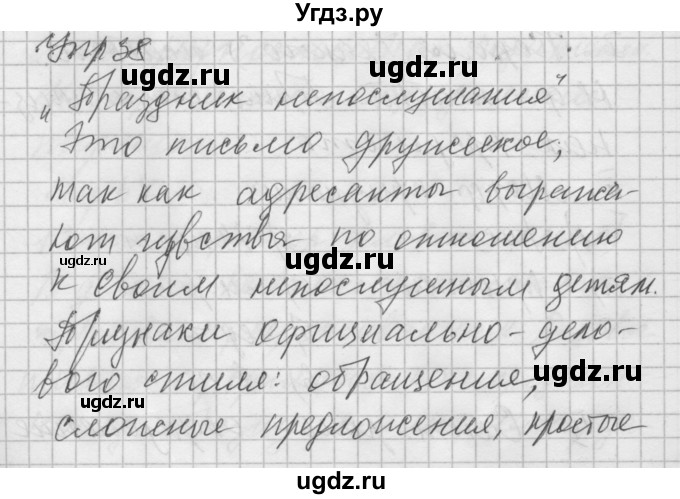 Угдз.ру
Упр 38
ugdz.ru ugdz.ru
„Праздник непослушания"
Это письмо дружеское,
ugdz.ru
так как адресанты выража-
ugdz.ru ugdz.ru
ют чувства по отношению
ugdz.ru
к своим непослушным детям.
ugdz.ru ugdz.ru
Признаки официально-дело-
ugdz.ru
вого стиля: обращения,
ugdz.ru ugdz.ru
сложные предложения, простые
ugdz.ru